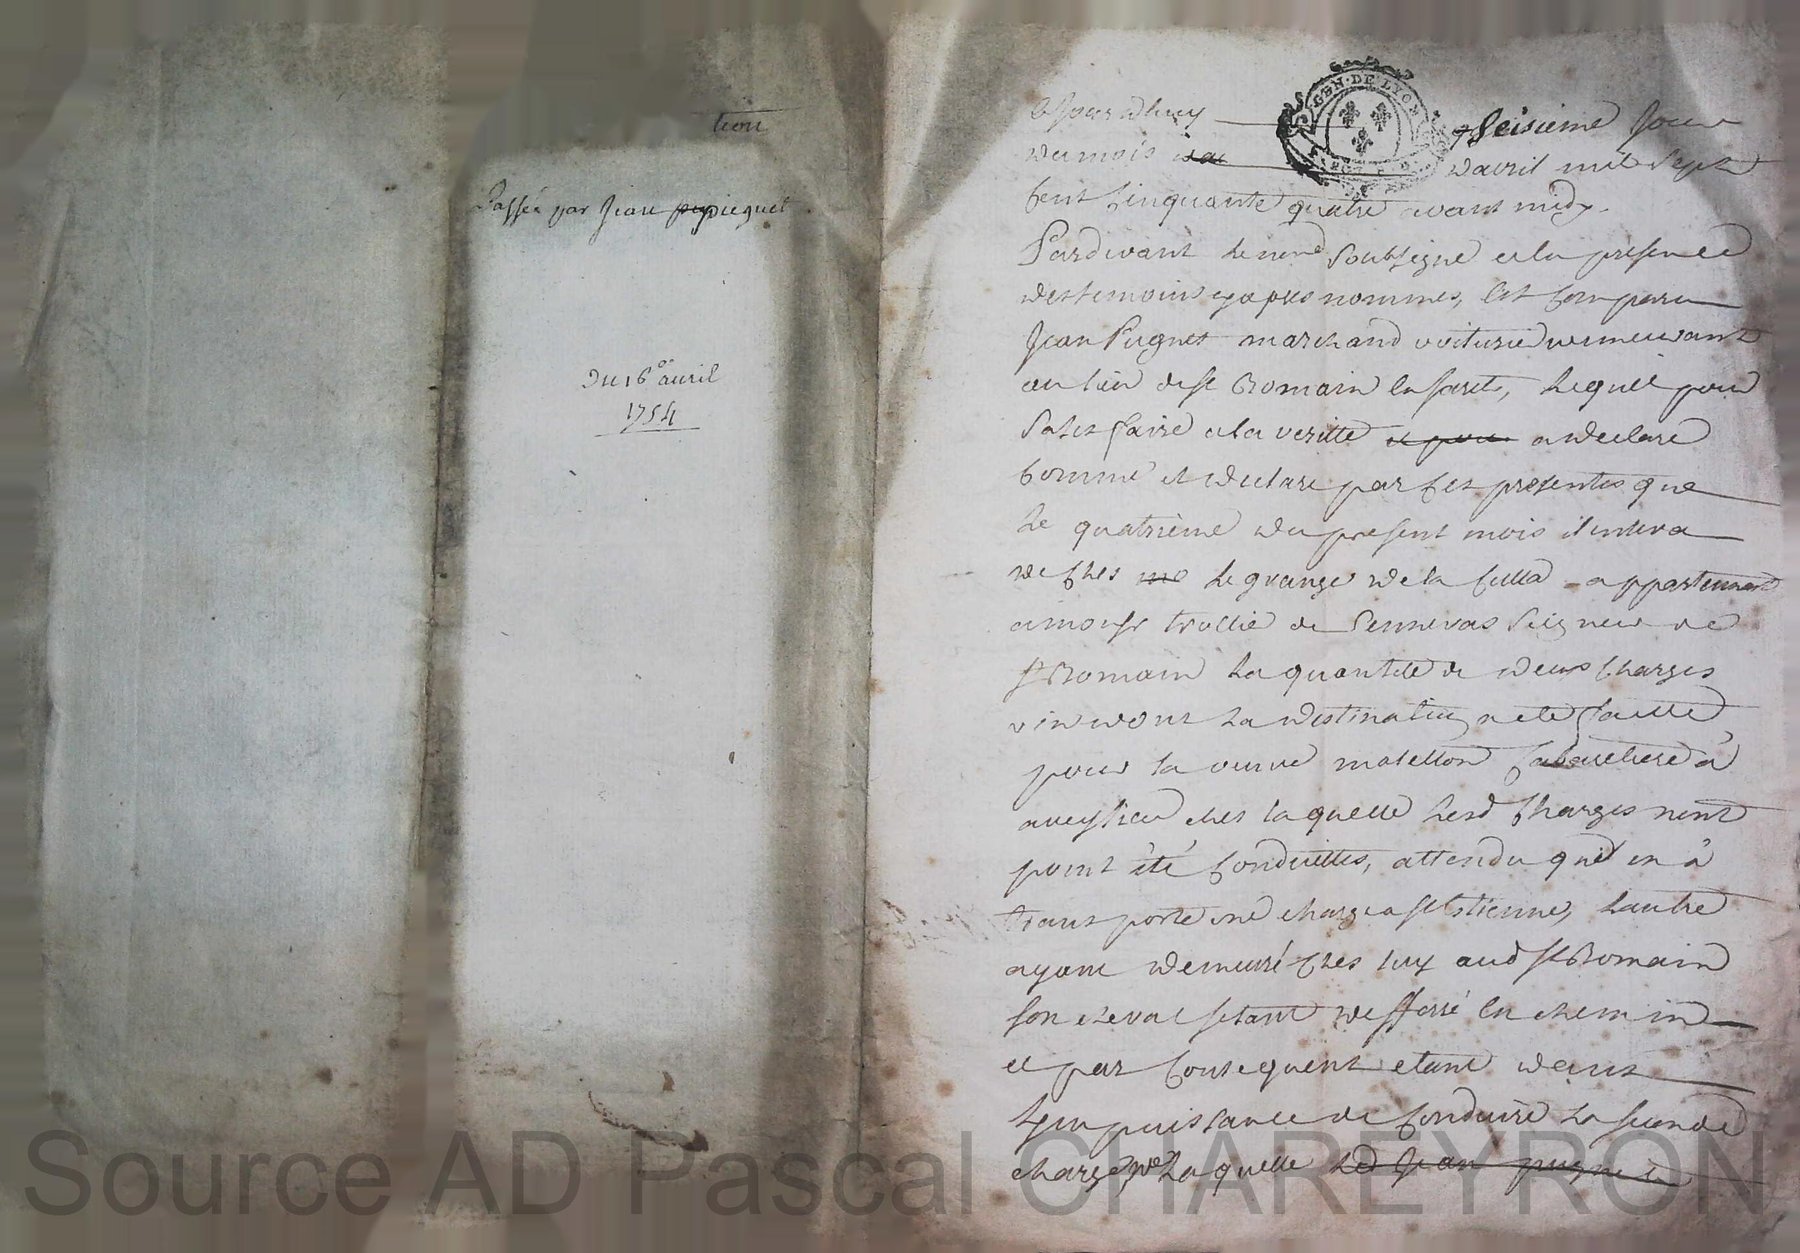 tion
Passée par Jean piegnet
Du 16e avril
1754
GEN·DE LYON
Cejourdhuy seisieme Jour
du mois davril mil sept
Cent Cinquante quatre avant midy.
Pardevant le nore soussigné et en presence
des temoins cy apres nommes, Est Comparu
Jean Pugnet marchand voiturie demeurant
au lieu de st Romain en Jarets, Lequel pour
Satisfaire a la veritté et pour a declaré
Comme il declare par Ces presentes que
Le quatrieme du present mois il enleva
de Ches mo Le granger de la appartenant
a monsr trollié de Sennevas Seigneur de
st Romain La quantitté de deux Charges
vin dont La destination a eté faitte
pour la veuve matellon Cabaretiere à
aveyzieu ches laquelle Lesd Charges nont
point été Conduittes, attendu quil en à
transporté une charge a st Estienne, Lautre
ayant demeuré Ches luy aud st Romain
son cheval setant defferré en chemin
et par Consequent etant dans
Limpuissance de Conduire La seconde
charge pr Laquelle Led Jean pugnet
Source AD Pascal CHAREYRON